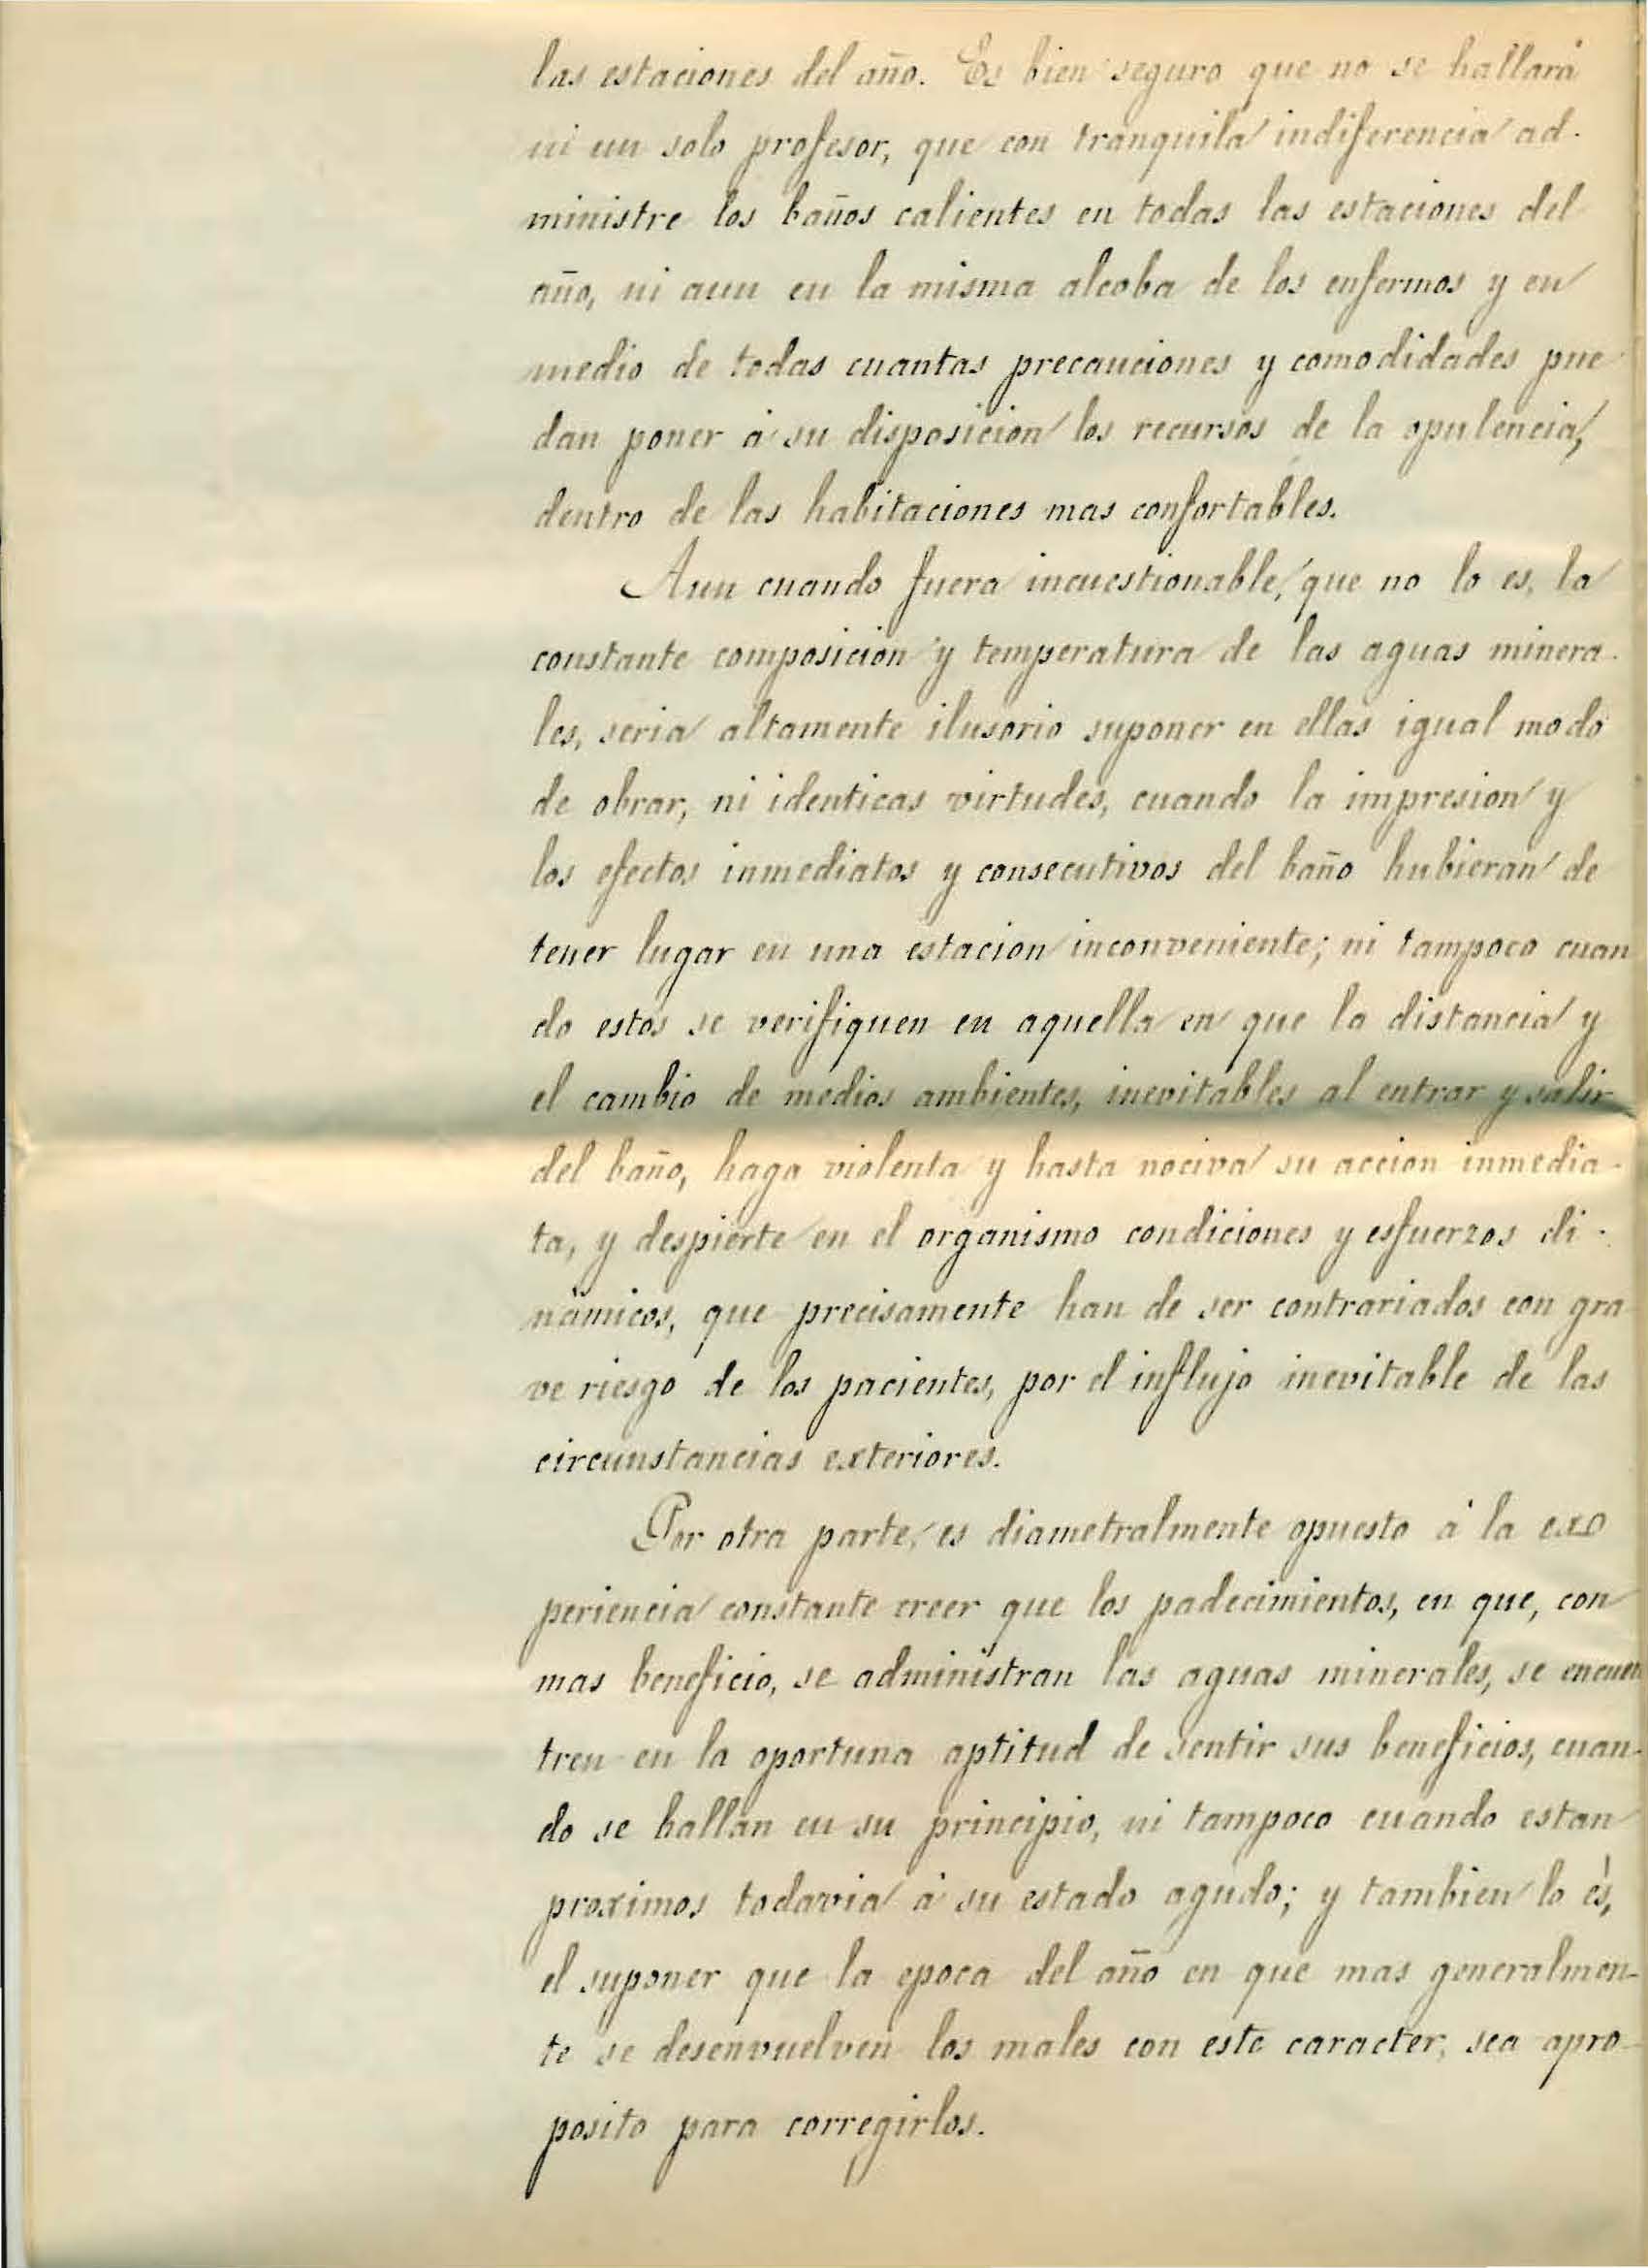 las estaciones del año. Es bien seguro que no se hallará
ni un solo profesor, que con tranquila indiferencia ad-
ministre los baños calientes en todas las estaciones del
año, ni aun en la misma alcoba de los enfermos y en
medio de todas cuantas precauciones y comodidades pue
dan poner á su disposicion los recursos de la opulencia,
dentro de las habitaciones mas confortables.
Aun cuando fuera incuestionable, que no lo es, la
constante composicion y temperatura de las aguas minera-
les, seria altamente ilusorio suponer en ellas igual modo
de obrar, ni identicas virtudes, cuando la impresion y
los efectos inmediatos y consecutivos del baño hubieran de
tener lugar en una estacion inconveniente; ni tampoco cuan
do estos se verifiquen en aquella en que la distancia y
el cambio de medios ambientes, inevitables al entrar y salir
del baño, haga violenta y hasta nociva su accion inmedia-
ta, y despierte en el organismo condiciones y esfuerzos di-
námicos, que precisamente han de ser contrariados con gra
ve riesgo de los pacientes, por el influjo inevitable de las
circunstancias exteriores.
Por otra parte, es diametralmente opuesto á la ex
periencia constante creer que los padecimientos, en que, con
mas beneficio, se administran las aguas minerales, se encuen
tren en la oportuna aptitud de sentir sus beneficios, cuan-
do se hallan en su principio, ni tampoco cuando estan
proximos todavia á su estado agudo; y tambien lo és,
el suponer que la epoca del año en que mas generalmen-
te se desenvuelven los males con este caracter, sea apro-
posito para corregirlos.